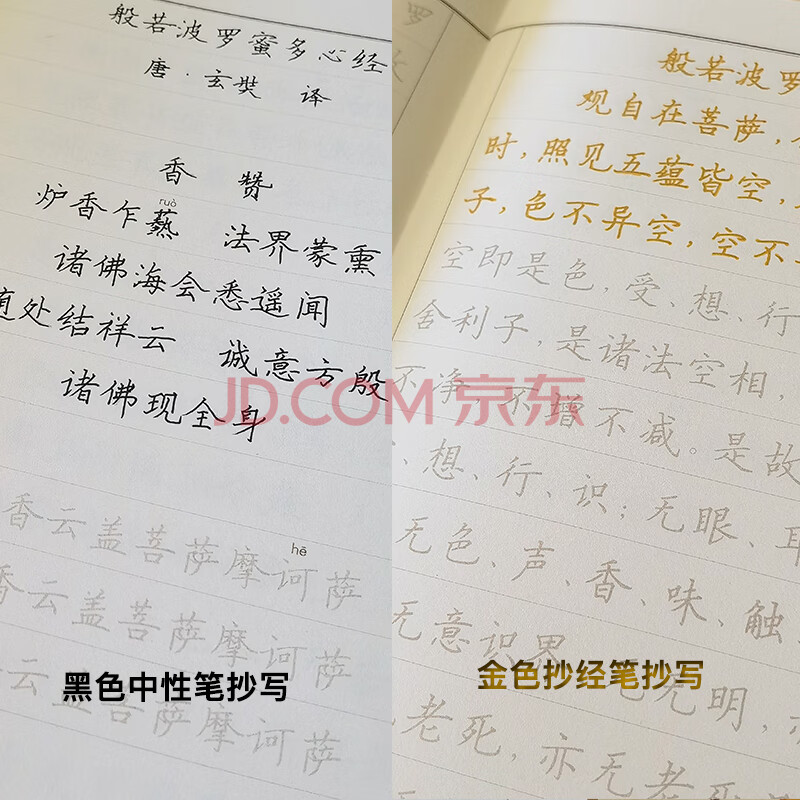 般若波罗蜜多心经
唐·玄奘 译
香 赞
ruò
炉香乍爇 法界蒙熏
诸佛海会悉遥闻
随处结祥云 诚意方殷
诸佛现全身
hē
香云盖菩萨摩诃萨
香云盖菩萨摩诃萨
云盖菩萨摩诃萨
黑色中性笔抄写
般若波罗
观自在菩萨,
时,照见五蕴皆空,
子,色不异空,空不
空即是色,受、想、行
舍利子,是诸法空相,
不净,不增不减。是故
、想、行、识;无眼、耳
无色、声、香、味、触
无意识界
无明,亦
老死,亦无老死
金色抄经笔抄写
JD.COM 京东